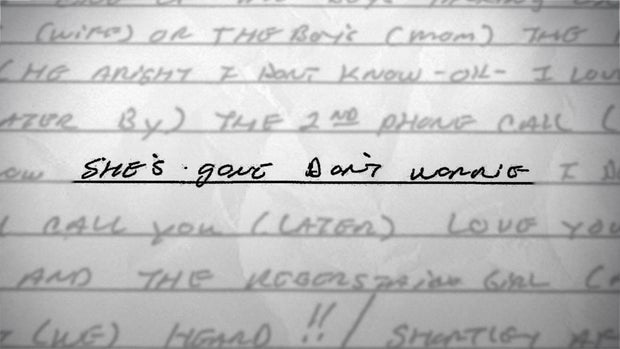 (WIFE) OR THE BOYS (MOM) THE
(HE ARIGHT I DONT KNOW -OIL- I LOVE
ATER BY) THE 2ND PHONE CALL (
OW SHE'S GONE DON'T WORRIE I DO
CALL YOU (LATER) LOVE YOU
AND THE REBERSTAING GIRL (
(WE) HEARD !! / SHORTLEY AF